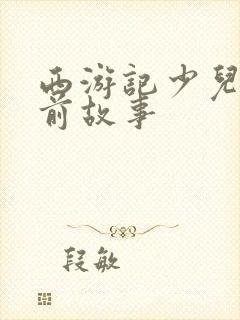 西游記少兒
前故事
段敏